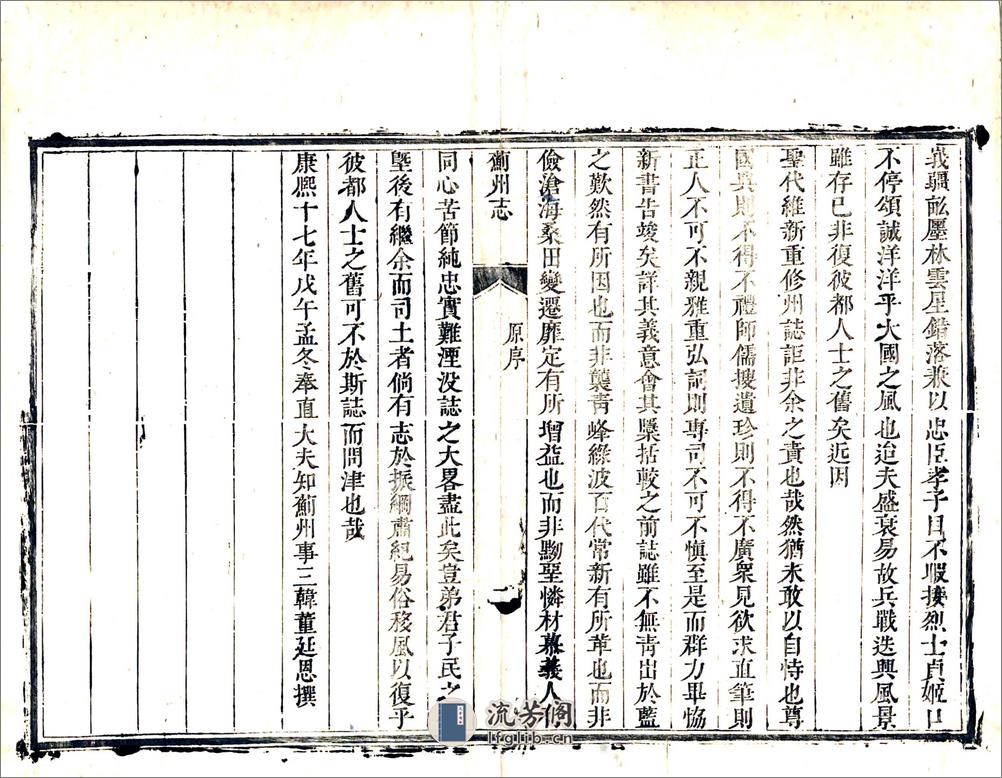 峩疆畆壥林雲星錯落兼以忠臣孝子目不暇接烈士貞姬口
不停頌誠洋洋乎大國之風也迨夫盛衰易故兵戰迭興風景
雖存已非復彼都人士之舊矣近因
聖代維新重修州誌詎非余之責也哉然猶未敢以自恃也尊
國典則不得不禮師儒搜遺珍則不得不廣衆見欲求直筆則
正人不可不親雅重弘詞則專司不可不慎至是而群力畢恊
新書告竣矣詳其義意會其櫽括較之前誌雖不無青出於藍
之歎然有所因也而非襲青峰綠波百代常新有所革也而非
儉滄海桑田變遷靡定有所增益也而非黝堊憐材慕義人
薊州志
原序
二
同心苦節純忠實難湮没誌之大畧盡此矣豈弟君子民之
塈後有繼余而司土者倘有志於振綱肅紀易俗移風以復乎
彼都人士之舊可不於斯誌而問津也哉
康熙十七年戊午孟冬奉直大夫知薊州事三韓董廷恩撰
流芳閣
lfglib.cn